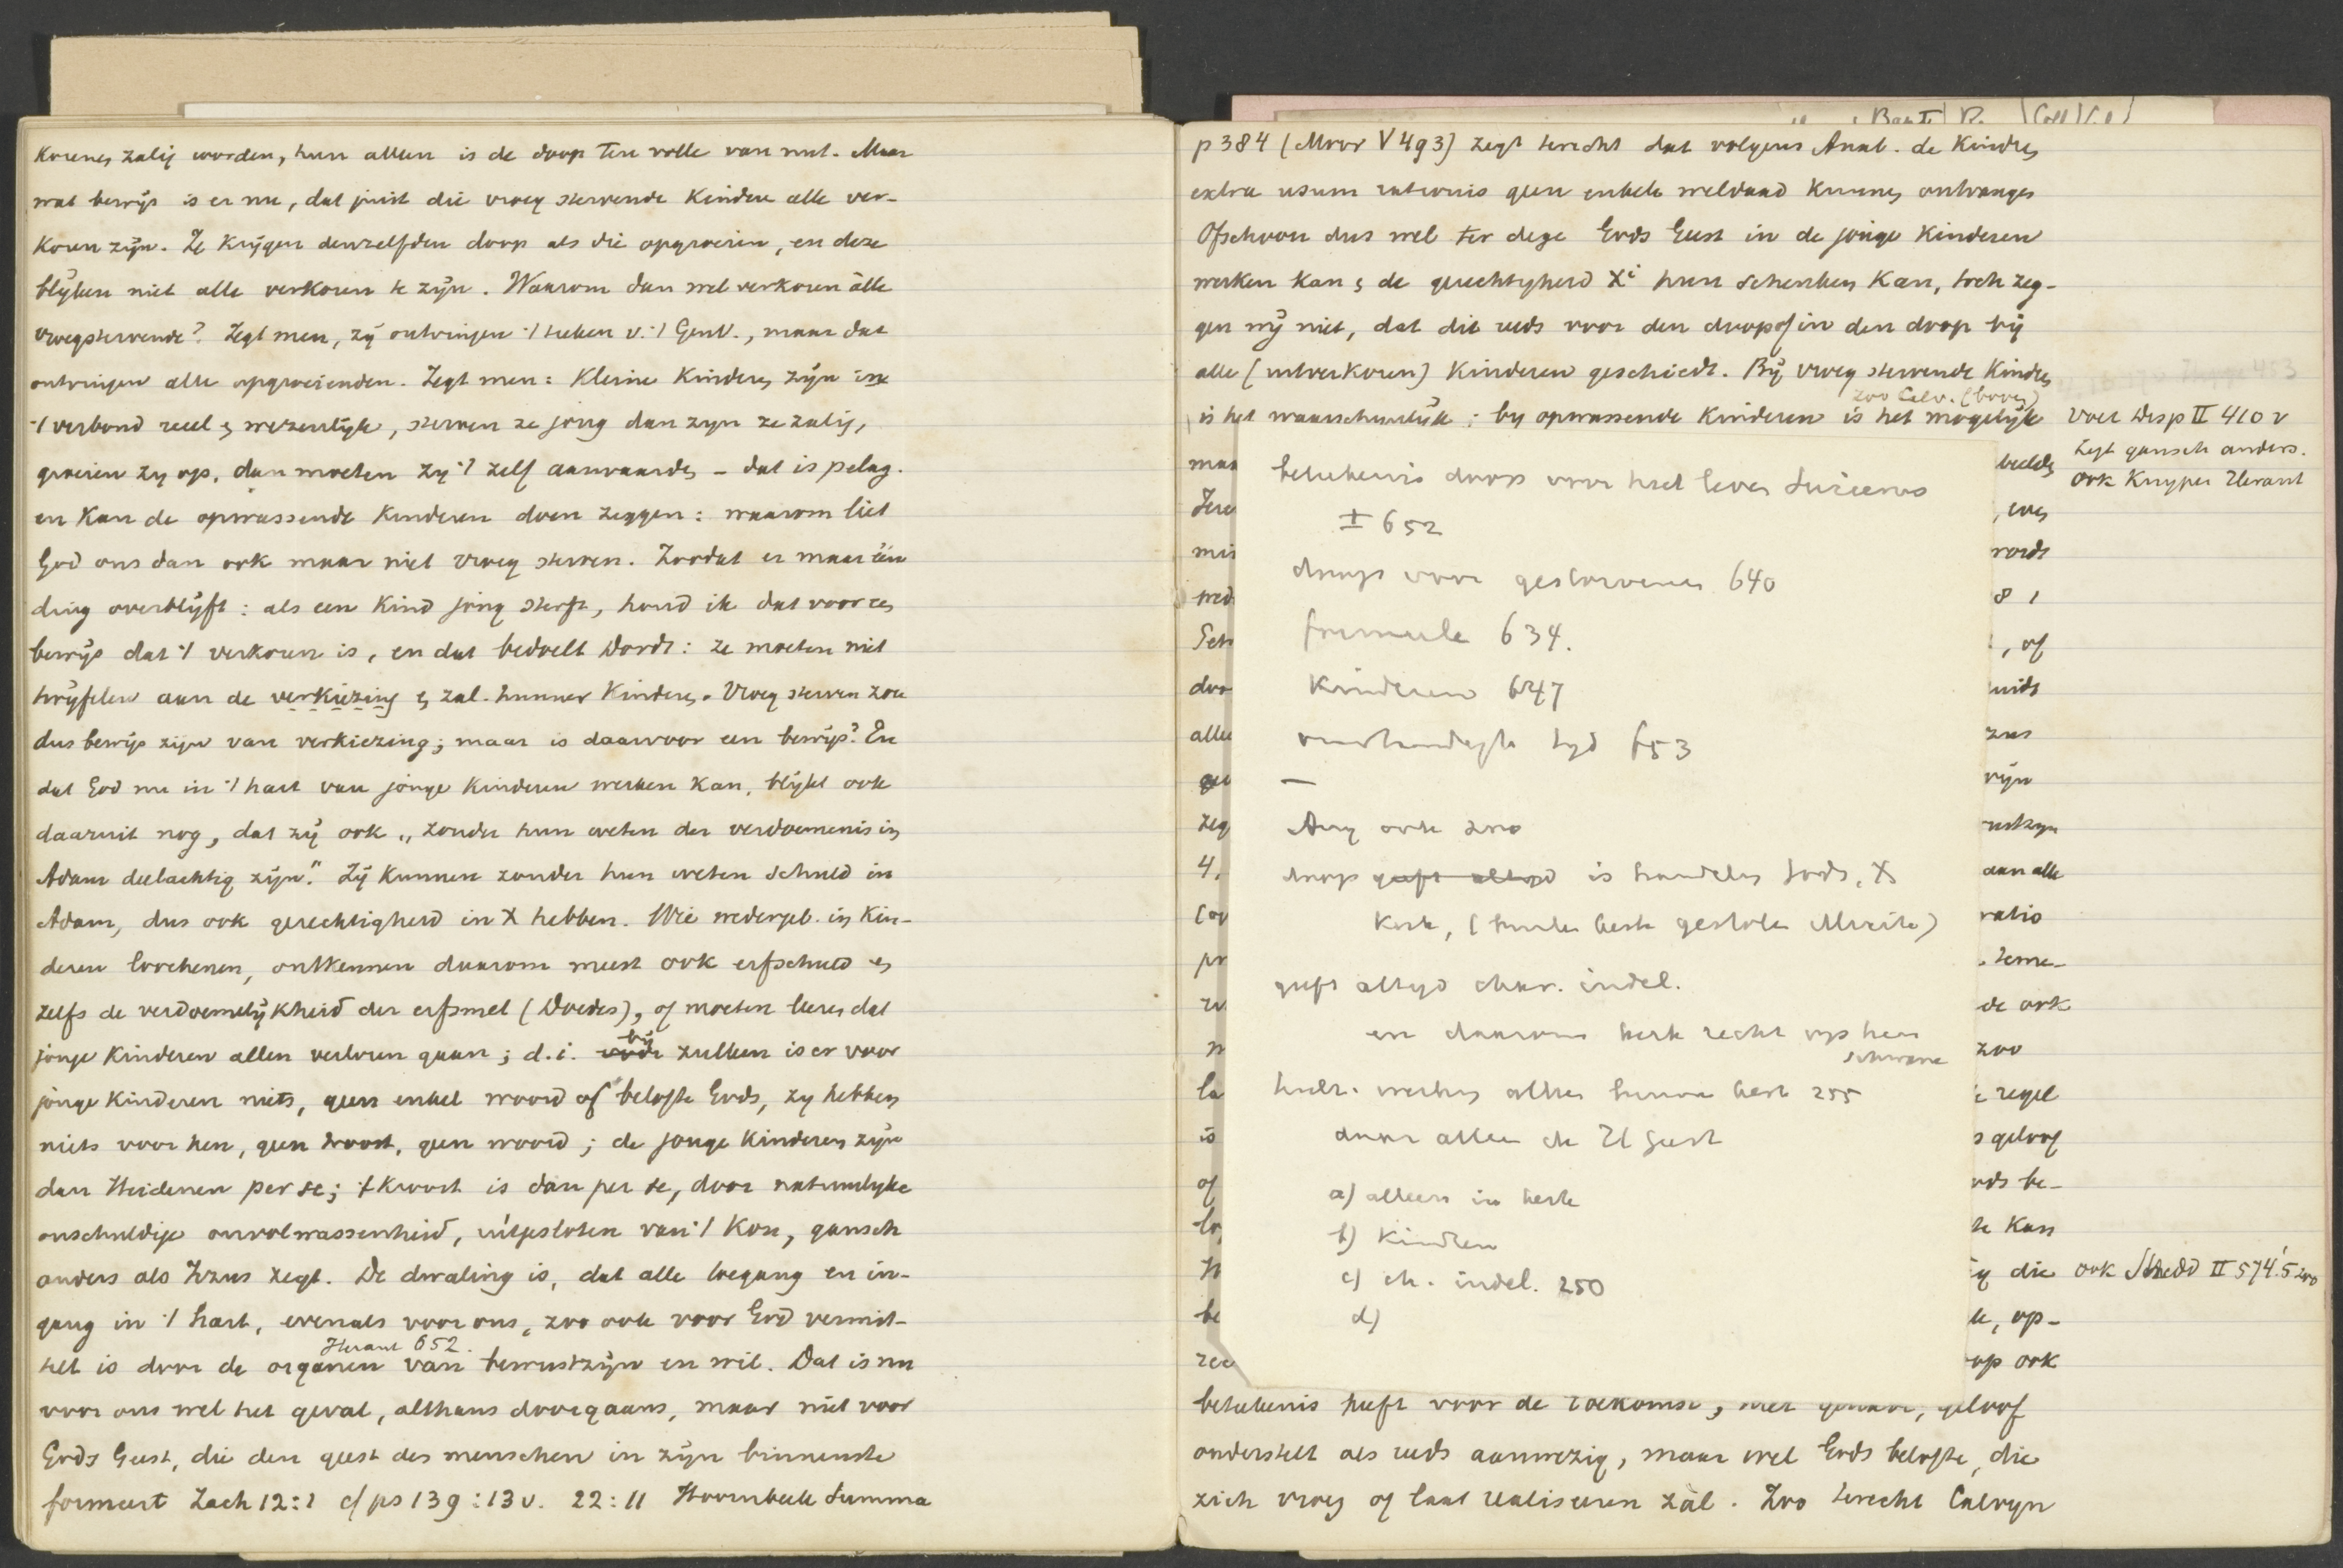 korenen zalig worden, hun alleen is de doop ten volle van nut. Maar
wat bewijs is er nu, dat juist die vroeg stervende kinderen alle ver-
koren zijn. Ze krijgen denzelfden doop als die opgroeien, en deze
blijken niet alle verkoren te zijn. Waarom dan wel verkoren alle
vroegstervende? Zegt men, zij ontvingen 't teeken v. 't GenV., maar dat
ontvingen alle opgroeienden. Zegt men: kleine kinderen zijn in
't verbond reeel en wezenlijk, sterven ze jong dan zijn ze zalig,
groeien zy op, dan moeten zy 't zelf aanvaarden – dat is pelag.
en kan de opwassende kinderen doen zeggen: waarom liet
God ons dan ook maar niet vroeg sterven. Zoodat er maar één
ding overblijft: als een kind jong sterft, houd ik dat voor een
bewijs dat 't verkoren is, en dat bedoelt Dordt: ze moeten niet
twijfelen aan de verkiezing en zal. hunner kinderen. Vroeg sterven zou
dus bewijs zijn van verkiezing; maar is daarvoor een bewijs? En
dat God nu in 't hart van jonge kinderen werken kan, blijkt ook
daaruit nog, dat zij ook „zonder hun weten der verdoemenis in
Adam deelachtig zijn." Zij kunnen zonder hun weten schuld in
Adam, dus ook gerechtigheid in X hebben. Wie wedergeb. in kin-
deren loochenen, ontkennen daarom meest ook erfschuld en
zelfs de verdoemelijkheid der erfsmet (Doedes), of moeten leeren dat
jonge kinderen allen verloren gaan; d.i. bij zulken is er voor
jonge kinderen niets, geen enkel woord of belofte Gods, zy hebben
niets voor hen, geen troost, geen woord; de jonge kinderen zijn
dan Heidenen per se; 't kroost is dan per se, door natuurlyke
onschuldige onvolwassenheid, uitgesloten van 't Kon, gansch
anders als Jezus zegt. De dwaling is, dat alle toegang en in-
gang in 't hart, evenals voor ons, zoo ook voor God vermit-
Heraut 652.
telt is door de organen van bewustzijn en wil. Dat is nu
voor ons wel het geval, althans doorgaans, maar niet voor
Gods Geest, die den geest des menschen in zijn binnenste
formeert Zach 12:1 cf ps 139:13v. 22:11 Hoornbeek Summa
p 384 (Moor V 493) zegt terecht dat volgens Anab. de kinderen
extra usum rationis geen enkele weldaad kunnen ontvangen
Ofschoon dus wel ter dege Gods Geest in de jonge kinderen
werken kan en de gerechtigheid Xi hun schenken kan, toch zeg-
gen wij niet, dat dit reeds voor den doop of in den doop bij
alle (uitverkoren) kinderen geschiedt. Bij vroeg stervende kinderen
zoo Calv. (boven)
is het waarschijnlijk; by opwassende kinderen is het mogelijk
Voet Disp II 410 v
zegt gansch anders.
ook Kuyper Heraut
beteekenis doop voor heel leven Suicerus
I 652
doop voor gestorvenen 640
formule 634.
kinderen 647
tyd 653
—
Aug ook zoo
doop geeft altyd is handelen Gods, X
kerk,
geeft altyd char. indel.
en daarom kerk recht op hen
Schwane
255
daar alleen de H Geest
a) alleen in kerk
b) kinderen
c) ch. indel. 250
d)
ook Shedd II 574.5 zoo
beteekenis heeft voor de toekomst, niet geloof
onderstelt als reeds aanwezig, maar wel Gods belofte, die
zich vroeg of laat realiseeren zal. Zoo terecht Calvyn